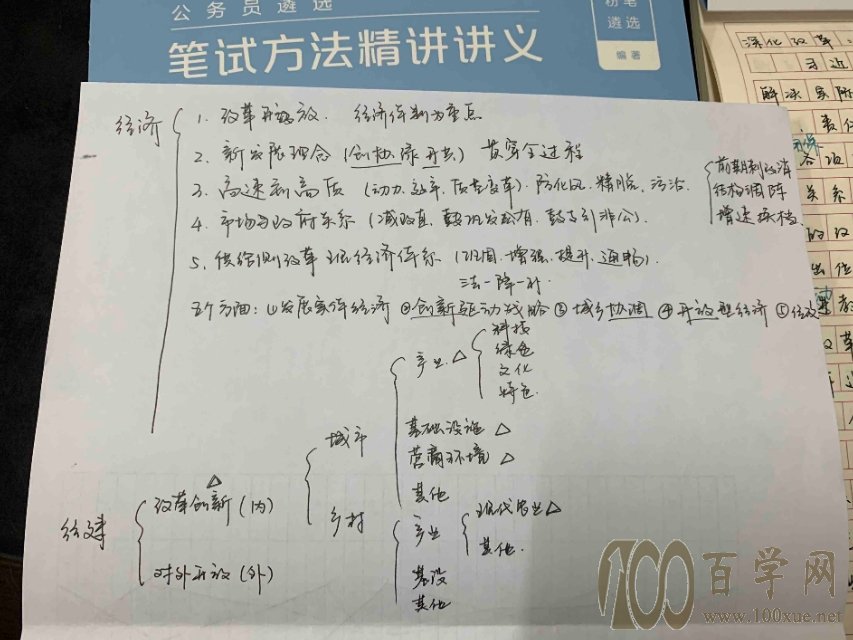 公务员遴选
笔试方法精讲讲义
粉笔
遴选
编著
深化改革
习近
解决实际
责任
各项
关系
的改
出位
改革
经济
1. 改革开放. 经济体制为重点
2. 新发展理念(创.协.绿.开.共)贯穿全过程
3. 高速到高质(动力.效率.质量变革).防化风.精脱.污治.
前期刺政消
结构调阵
增速换档
4. 市场与政府关系(减政直.鼓巩发公有.鼓支引非公).
5. 供给侧改革 现经济体系(巩固.增强.提升.通畅).
三去一降一补.
五个方面:①发展实体经济 ②创新驱动战略 ③城乡协调 ④开放型经济 ⑤经改
经建
改革创新(内)
对外开放(外)
城市
产业
科技
绿色
文化
特色.
基础设施
营商环境
其他
乡村
产业
现代农业
其他.
基设
其他
100百学网
www.100xue.net